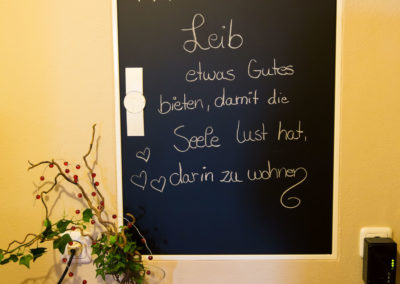 Leib
etwas Gutes
bieten, damit die
Seele Lust hat,
darin zu wohnen